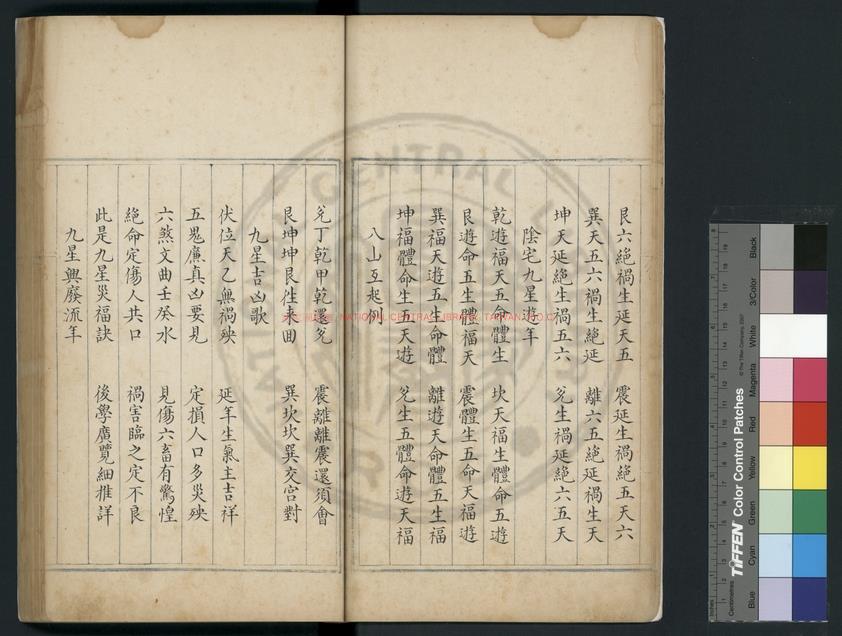 艮六絕禍生延天五　震延生禍絕五天六
巽天五六禍生絕延　離六五絕延禍生天
坤天延絕生禍五六　兌生禍延絕六五天
陰宅九星遊年
乾遊福天五命體生　坎天福生體命五遊
艮遊命五生體福天　震體生五命天福遊
巽福天遊五生命體　離遊天命體五生福
坤福體命生五天遊　兌生五體命遊天福
八山互起例
兌丁乾甲乾還兌　震離離震還須會
艮坤坤艮徃来回　巽坎坎巽交宮對
九星吉凶歌
伏位天乙無禍殃　延年生氣主吉祥
五鬼廉真凶要見　定損人口多災殃
六煞文曲壬癸水　見傷六畜有驚惶
絕命定傷人共口　禍害臨之定不良
此是九星災福訣　後學廣覽細推詳
九星興廢流年
NATIONAL CENTRAL LIBRARY, TAIWAN
TIFFEN Color Control Patches
© The Tiffen Company, 2007
Centimetres
Inches
Blue
Cyan
Green
Yellow
Red
Magenta
White
3/Color
Black